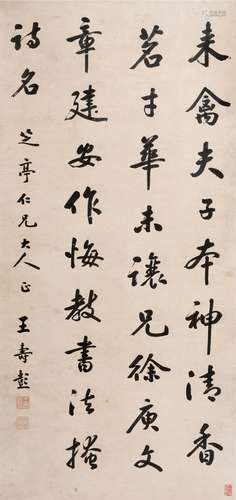 来禽夫子本神清香
茗才華未讓兄徐庾文
章建安作悔教書法掩
詩名
芝亭仁兄大人正
王壽彭